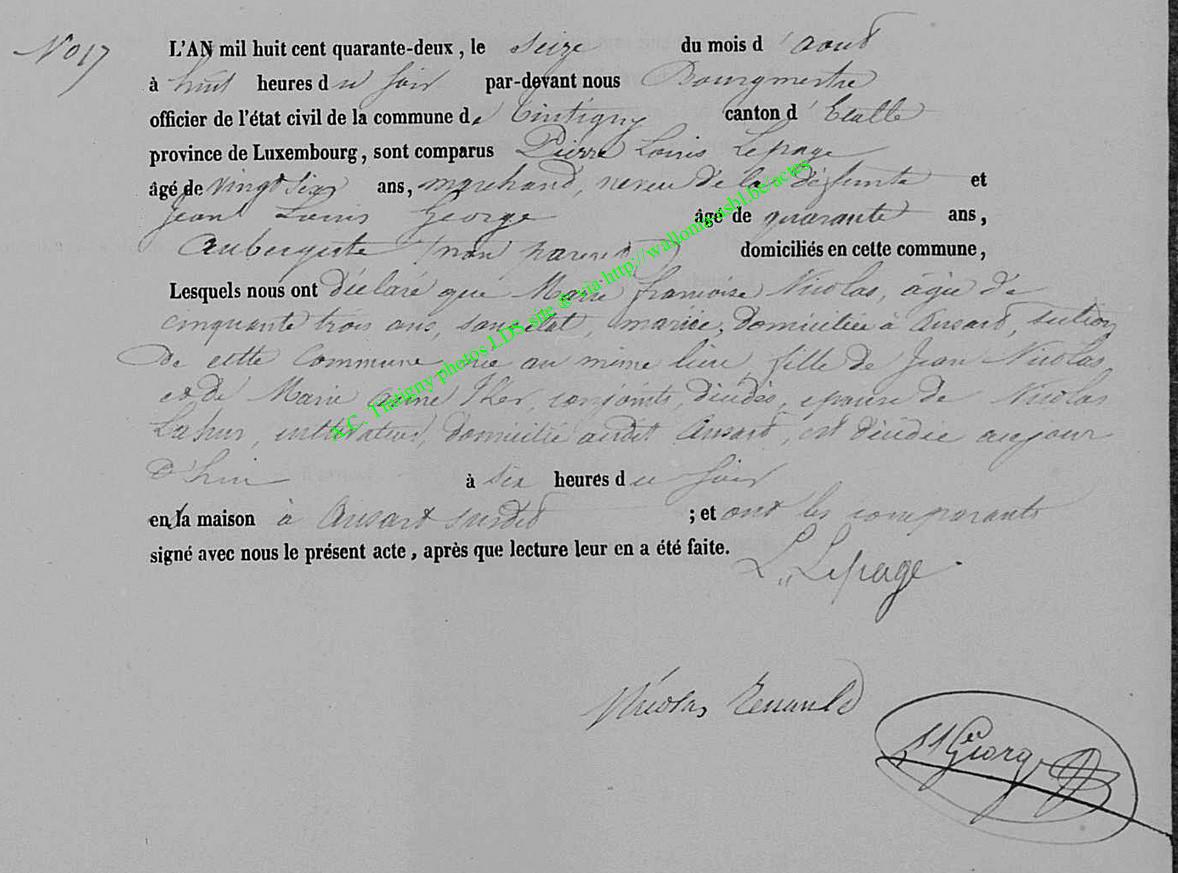 No 17
L'AN mil huit cent quarante-deux, le seize du mois d'aout
à huit heures du soir par-devant nous Bourgmestre
officier de l'état civil de la commune de Tintigny canton d'Etalle
province de Luxembourg, sont comparus Pierre Louis Lepage
âgé de vingt six ans, marchand, neveu de la défunte et
Jean Louis George âgé de quarante ans,
Aubergiste (non parent) domiciliés en cette commune,
Lesquels nous ont déclaré que Marie françoise Nicolas, âgée de
cinquante trois ans, sans état, mariée, domiciliée à Ansart, section
de cette commune née au même lieu, fille de Jean Nicolas
et de Marie anne conjoints décédés, épouse de Nicolas
cultivateur, domicilié audit Ansart, est décédée aujour
d'hui à six heures du soir
en la maison à Ansart susdit ; et ont les comparants
signé avec nous le présent acte, après que lecture leur en a été faite.
L. Lepage
Nicolas Renauld
George
A.C. Tintigny photos LDS site @ via http://wallonia-asbl.be actes